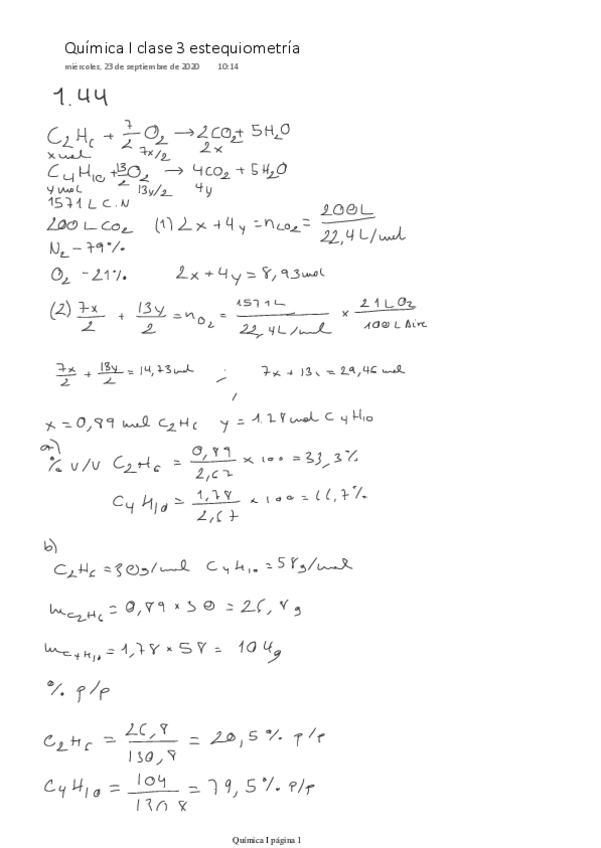 Química I clase 3 estequiometría
miércoles, 23 de septiembre de 2020 10:14
1.44
C₂H₆ + 7/2 O₂ → 2CO₂ + 5H₂O
x mol 7x/2 2x
C₄H₁₀ + 13/2 O₂ → 4CO₂ + 5H₂O
y mol 13y/2 4y
1571 L C.N
200 L CO₂ (1) 2x + 4y = nCO₂ = 200L / 22,4 L/mol
N₂ - 79%
O₂ - 21% 2x + 4y = 8,93 mol
(2) 7x/2 + 13y/2 = nO₂ = 1571L / 22,4 L/mol × 21 L O₂ / 100 L Aire
7x/2 + 13y/2 = 14,73 mol ; 7x + 13y = 29,46 mol
x = 0,89 mol C₂H₆ y = 1.78 mol C₄H₁₀
a)
% v/v C₂H₆ = 0,89 / 2,67 × 100 = 33,3%
C₄H₁₀ = 1,78 / 2,67 × 100 = 66,7%
b)
C₂H₆ = 30 g/mol C₄H₁₀ = 58 g/mol
mC₂H₆ = 0,89 × 30 = 26,8 g
mC₄H₁₀ = 1,78 × 58 = 104 g
% p/p
C₂H₆ = 26,8 / 130,8 = 20,5% p/p
C₄H₁₀ = 104 / 130,8 = 79,5% p/p
Química I página 1